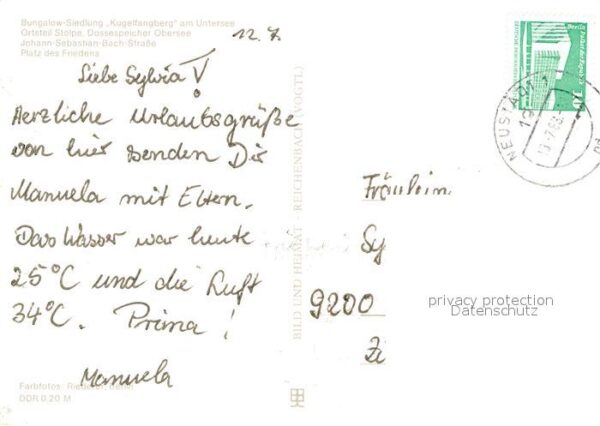 Bungalow-Siedlung „Kugelfangberg" am Untersee
Ortsteil Stolpe, Dossespeicher Obersee
Johann-Sebastian-Bach-Straße
Platz des Friedens
12.7
Liebe Sylvia!
Herzliche Urlaubsgrüße
von hier senden Dir
Manuela mit Eltern.
Das Wasser war heute
25°C und die Luft
34°C. Prima!
Manuela
Farbfotos
DDR 0,20 M
BILD UND HEIMAT REICHENBACH (VOGTL)
NEUSTADT
10
Fräulein
Sy
9200
Zi
privacy protection
Datenschutz